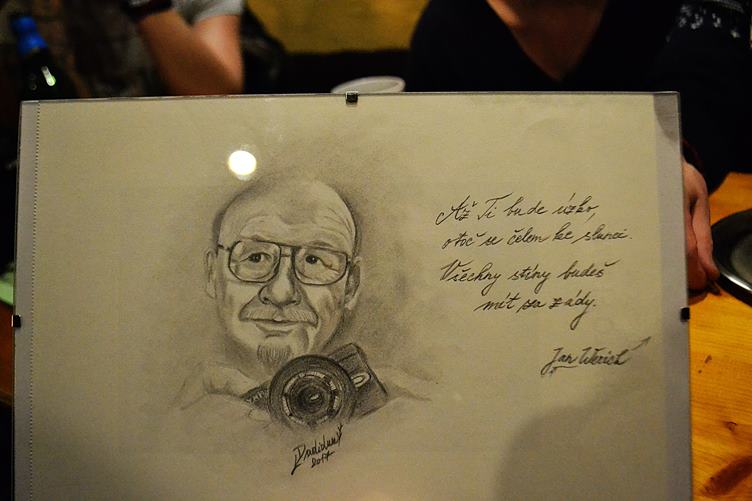 Až Ti bude úzko,
otoč se čelem ke slunci.
Všechny stíny budeš
mít za zády.
Jan Werich
2017